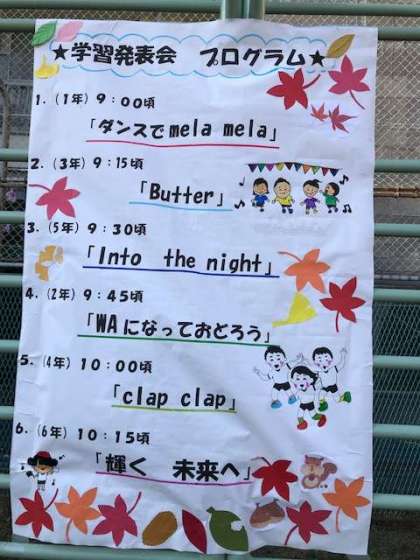 ★学習発表会 プログラム★
1.(1年)9:00頃
「ダンスでmela mela」
2.(3年)9:15頃
「Butter」
3.(5年)9:30頃
「Into the night」
4.(2年)9:45頃
「WAになっておどろう」
5.(4年)10:00頃
「clap clap」
6.(6年)10:15頃
「輝く 未来へ」